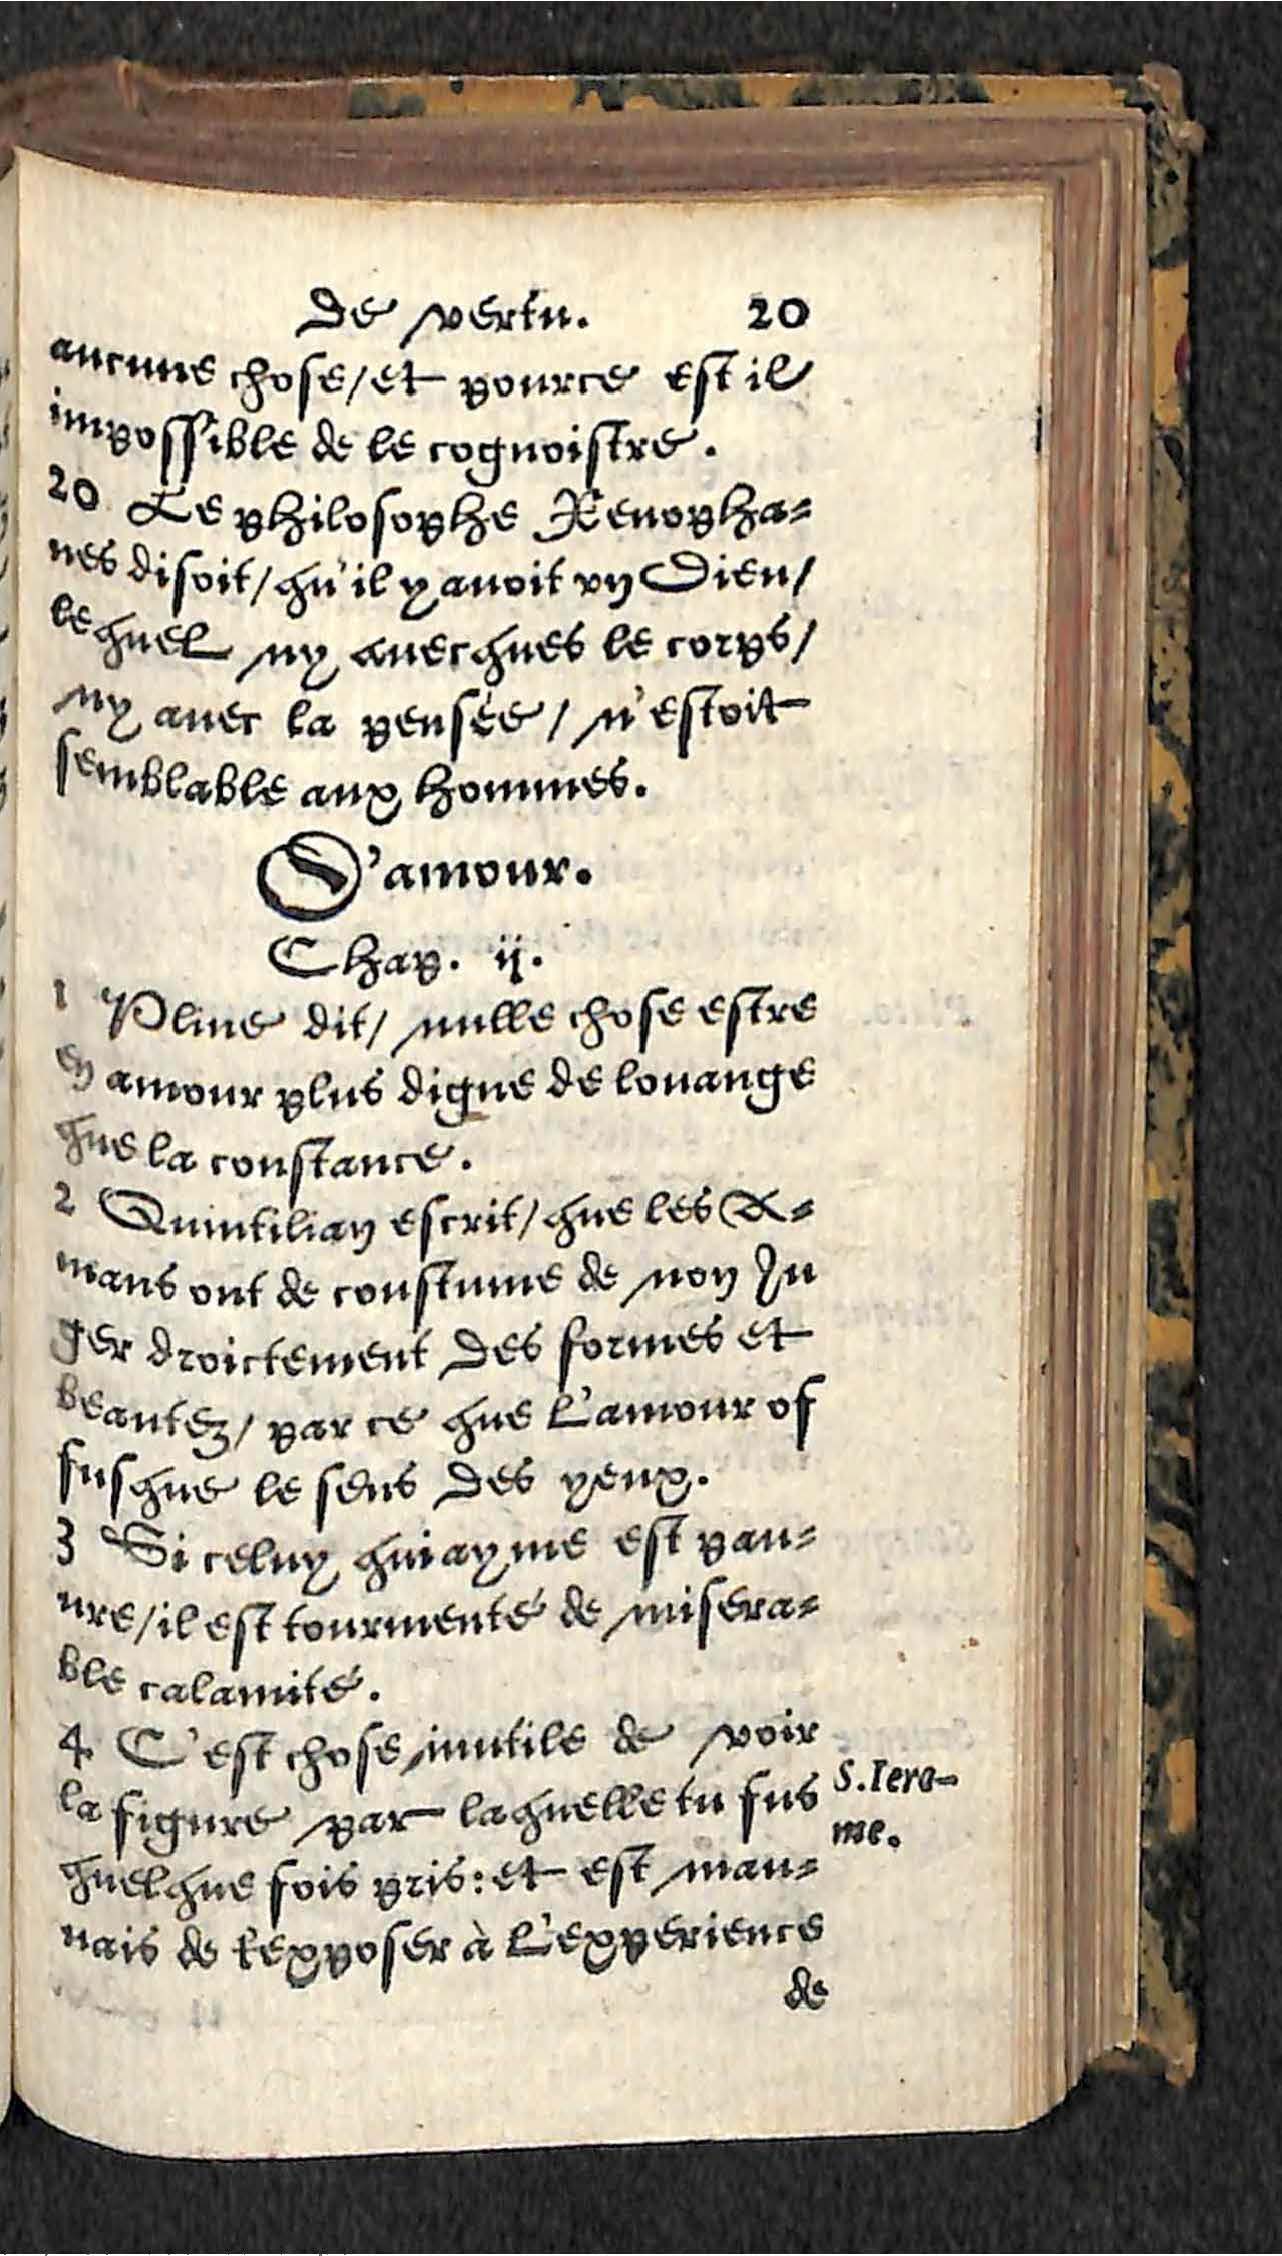 de vertu. 20
aucune chose/et pource est il
impossible de le cognoistre.
20 Le philosophe Xenopha-
nes disoit/qu'il y auoit vn Dieu/
lequel ny auecques le corps/
ny auec la pensée/ n'estoit
semblable aux hommes.
D'amour.
Chap. ij.
1 Pline dit/ nulle chose estre
en amour plus digne de louange
que la constance.
2 Quintilian escrit/que les A-
mans ont de coustume de non Iu
ger droictement des formes et
beautez/ par ce que l'amour of
fusque le sens des yeux.
3 Si celuy qui ayme est pau-
ure/il est tourmenté de misera-
ble calamité.
4 C'est chose inutile de voir
la figure par laquelle tu fus
quelque fois pris: et est mau-
uais de t'exposer à l'experience
de
S. Iero-
me.